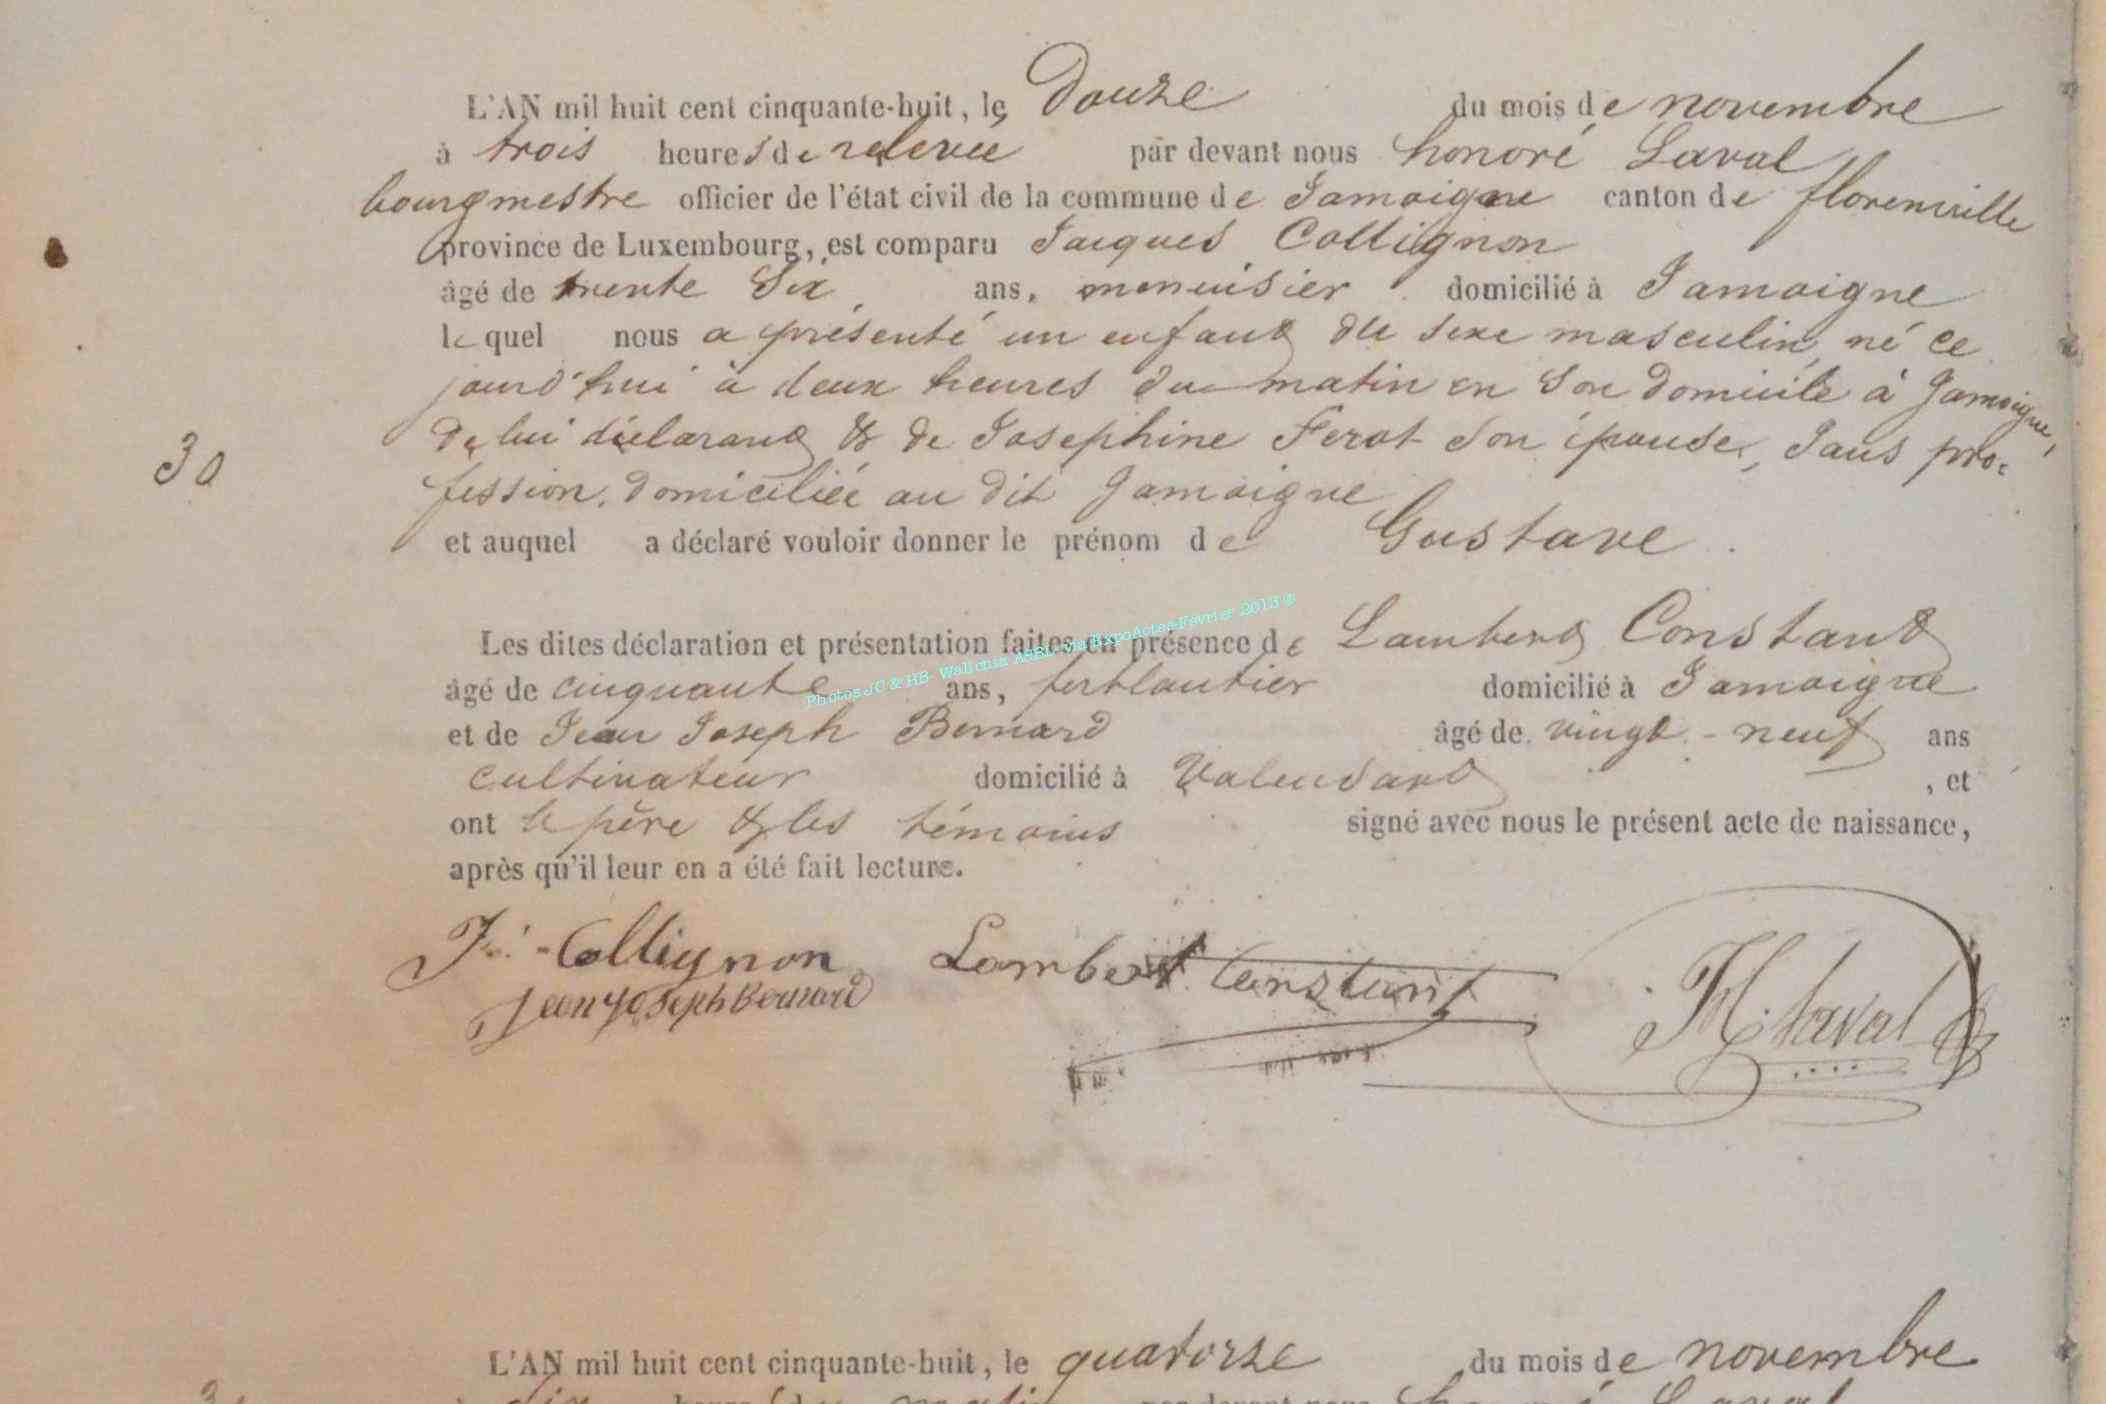 L'AN mil huit cent cinquante-huit, le Douze du mois de novembre
à trois heures de relevée par devant nous honoré Laval
bourgmestre officier de l'état civil de la commune de Jamoigne canton de florenville
province de Luxembourg, est comparu Jacques Collignon
âgé de trente Six ans, menuisier domicilié à Jamoigne
lequel nous a présenté un enfant du sexe masculin, né ce
jourd'hui à deux heures du matin en son domicile à Jamoigne,
30
de lui déclarant & de Josephine Ferot son épouse, sans pro-
fession, domiciliée au dit Jamoigne
et auquel a déclaré vouloir donner le prénom de Gustave.
Les dites déclaration et présentation faites en présence de Lambert Constant
Photos JC & HB- Wallonia ASBL via ExpoActes-Février 2013 ©
âgé de cinquante ans, ferblantier domicilié à Jamoigne
et de Jean Joseph Bernard âgé de vingt-neuf ans
cultivateur domicilié à Valensart, et
ont le père & les témoins signé avec nous le présent acte de naissance,
après qu'il leur en a été fait lecture.
J. Collignon Lambert Constant H. Laval
Jean Joseph Bernard
L'AN mil huit cent cinquante-huit, le quatorze du mois de novembre